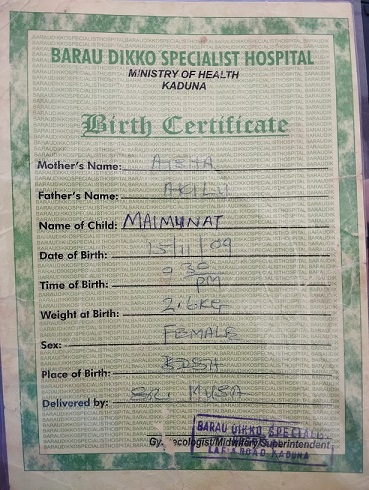 BARAU DIKKO SPECIALIST HOSPITAL
MINISTRY OF HEALTH
KADUNA
Birth Certificate
Mother's Name: AISHA
Father's Name: AKILU
Name of Child: MAIMUNAT
Date of Birth: 15/11/09
Time of Birth: 9 30 PM
Weight at Birth: 2.6KG
Sex: FEMALE
Place of Birth: BDSH
Delivered by: SR. MUSA
BARAU DIKKO SPECIALIS
Gynecologist/Midwifery/Superintendent
LAFIA ROAD KADUNA